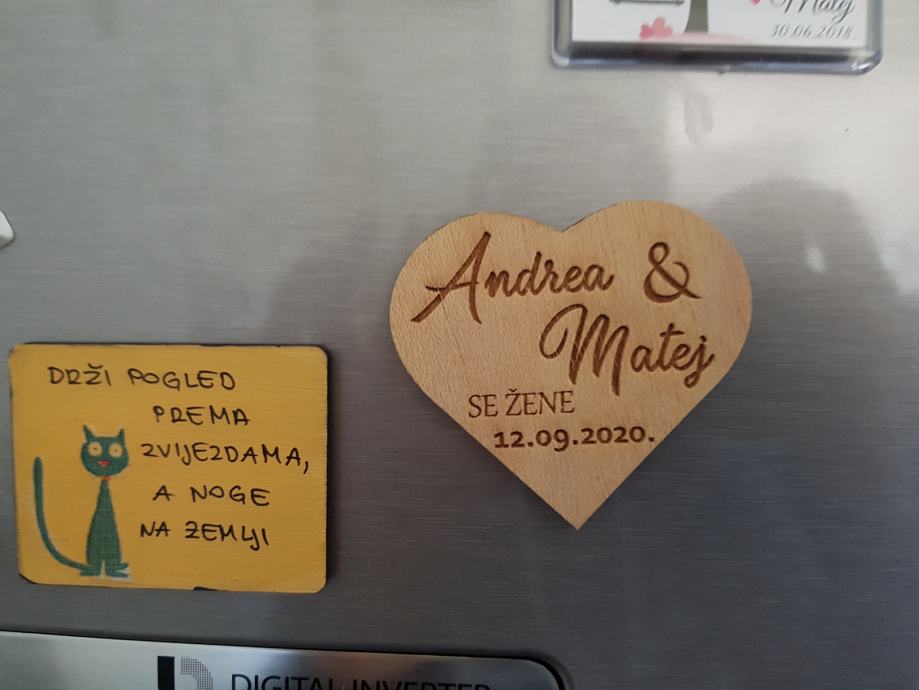 Matej
30.06.2018.
Andrea &
Matej
SE ŽENE
12.09.2020.
DRŽI POGLED
PREMA
ZVIJEZDAMA,
A NOGE
NA ZEMLJI
DIGITAL INVERTER